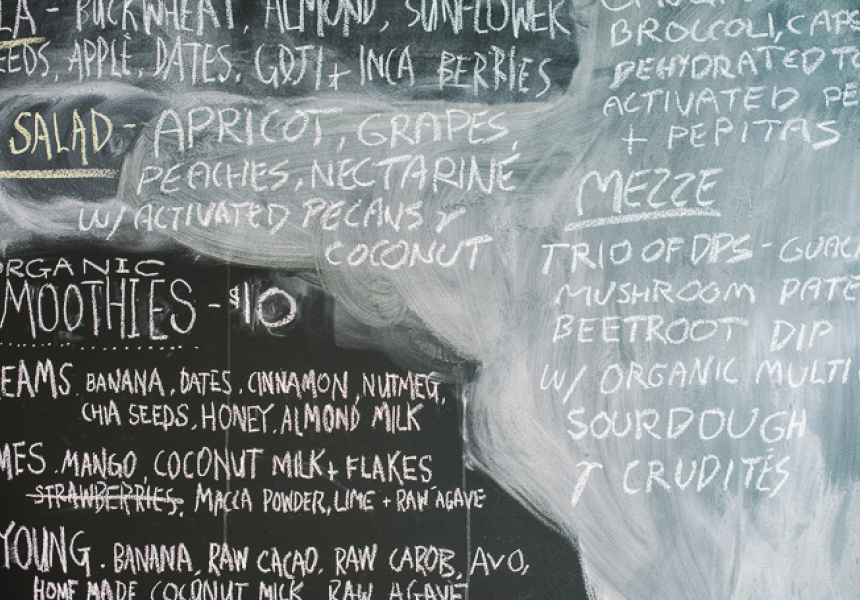 LA - BUCKWHEAT, ALMOND, SUNFLOWER
EEDS, APPLE, DATES, GOJI + INCA BERRIES
SALAD - APRICOT, GRAPES,
PEACHES, NECTARINE
W/ ACTIVATED PECANS &
COCONUT
ORGANIC
SMOOTHIES - $10
EAMS. BANANA, DATES, CINNAMON, NUTMEG,
CHIA SEEDS, HONEY, ALMOND MILK
MES. MANGO, COCONUT MILK + FLAKES
STRAWBERRIES, MACCA POWDER, LIME + RAW AGAVE
YOUNG. BANANA, RAW CACAO, RAW CAROB, AVO,
HOME MADE COCONUT MILK, RAW AGAVE
BROCCOLI, CAPS
DEHYDRATED TO
ACTIVATED PE
+ PEPITAS
MEZZE
TRIO OF DIPS - GUAC
MUSHROOM PATE
BEETROOT DIP
W/ ORGANIC MULTI
SOURDOUGH
& CRUDITÉS